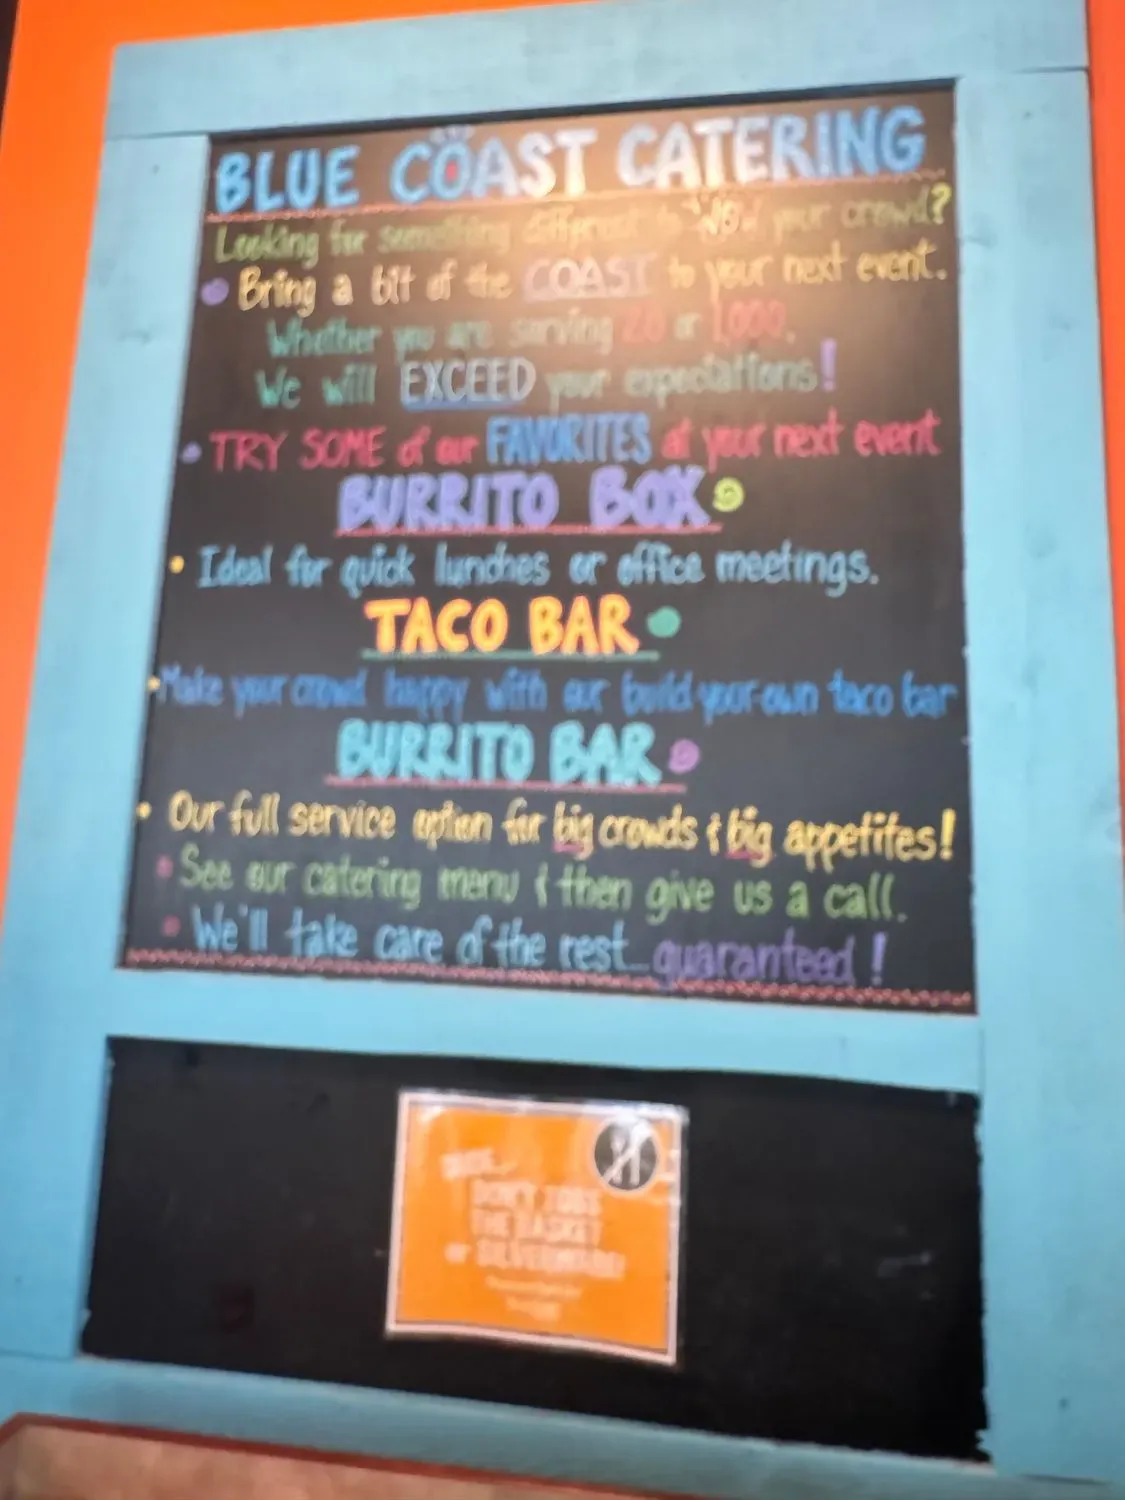 BLUE COAST CATERING
Looking for something different to "WOW" your crowd?
Bring a bit of the COAST to your next event.
Whether you are serving 20 or 1,000.
We will EXCEED your expectations!
TRY SOME of our FAVORITES at your next event
BURRITO BOX
Ideal for quick lunches or office meetings.
TACO BAR
Make your crowd happy with our build your own taco bar
BURRITO BAR
Our full service option for big crowds & big appetites!
See our catering menu & then give us a call.
We'll take care of the rest guaranteed!
DON'T TOSS
THE BASKET
or SILVERWARE!